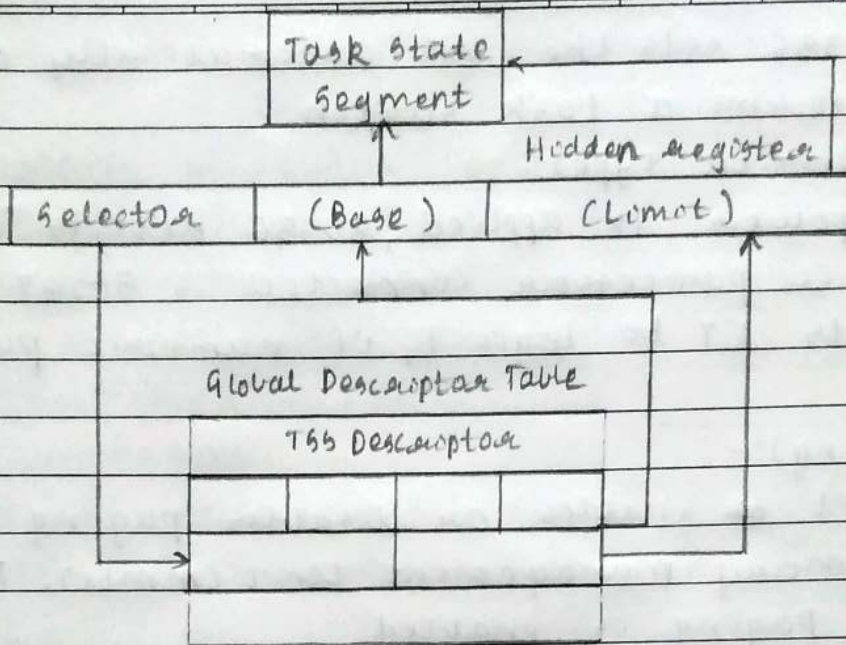 Task State
Segment
Hidden register
Selector (Base) (Limit)
Global Descriptor Table
TSS Descriptor